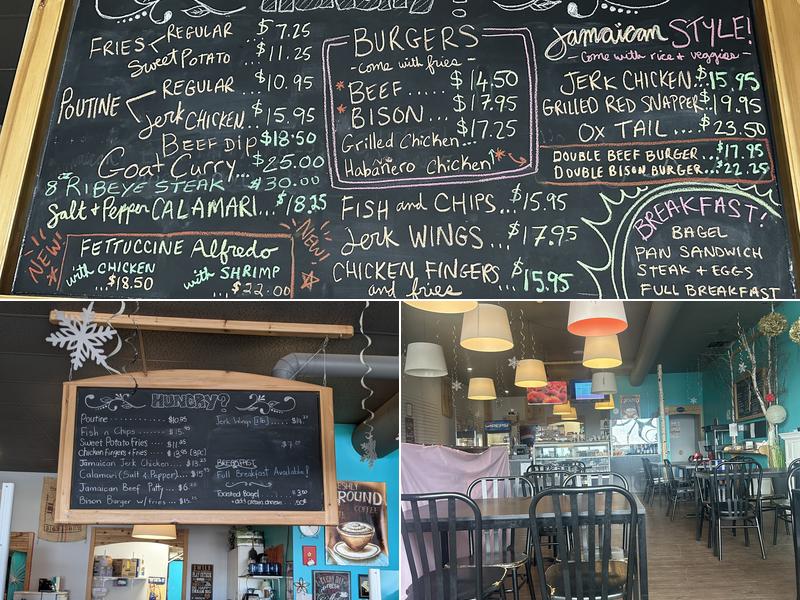 FRIES REGULAR $7.25
Sweet POTATO $11.25
POUTINE REGULAR $10.95
Jerk CHICKEN ... $15.95
BEEF Dip $18.50
Goat CURRY... $25.00
8 oz RIBEYE STEAK $30.00
Salt + Pepper CALAMARI... $18.25
NEW!
NEW!
FETTUCCINE Alfredo
with CHICKEN with SHRIMP
...$18.50 ...$22.00
BURGERS
-come with fries-
* BEEF..... $14.50
* BISON.... $17.95
Grilled Chicken... $17.25
Habañero Chicken! *
FISH and CHIPS... $15.95
Jerk WINGS... $17.95
CHICKEN FINGERS
and fries $15.95
Jamaican STYLE!
- Come with rice + veggies -
JERK CHICKEN... $15.95
GRILLED RED SNAPPER $19.95
OX TAIL.... $23.50
DOUBLE BEEF BURGER... $17.95
DOUBLE BISON BURGER... $22.25
BREAKFAST!
BAGEL
PAN SANDWICH
STEAK + EGGS
FULL BREAKFAST
HUNGRY?
Poutine $10.95
Fish n Chips $15.95
Sweet Potato Fries $11.25
Chicken Fingers + Fries
Jamaican Jerk Chicken
Calamari (Salt & Pepper)
Jamaican Beef Patty $6
Bison Burger w/ fries
Jerk Wings
BREAKFAST
Full Breakfast Available!
Toasted Bagel
+ add cream cheese
ROUND
COFFEE
PEPSI